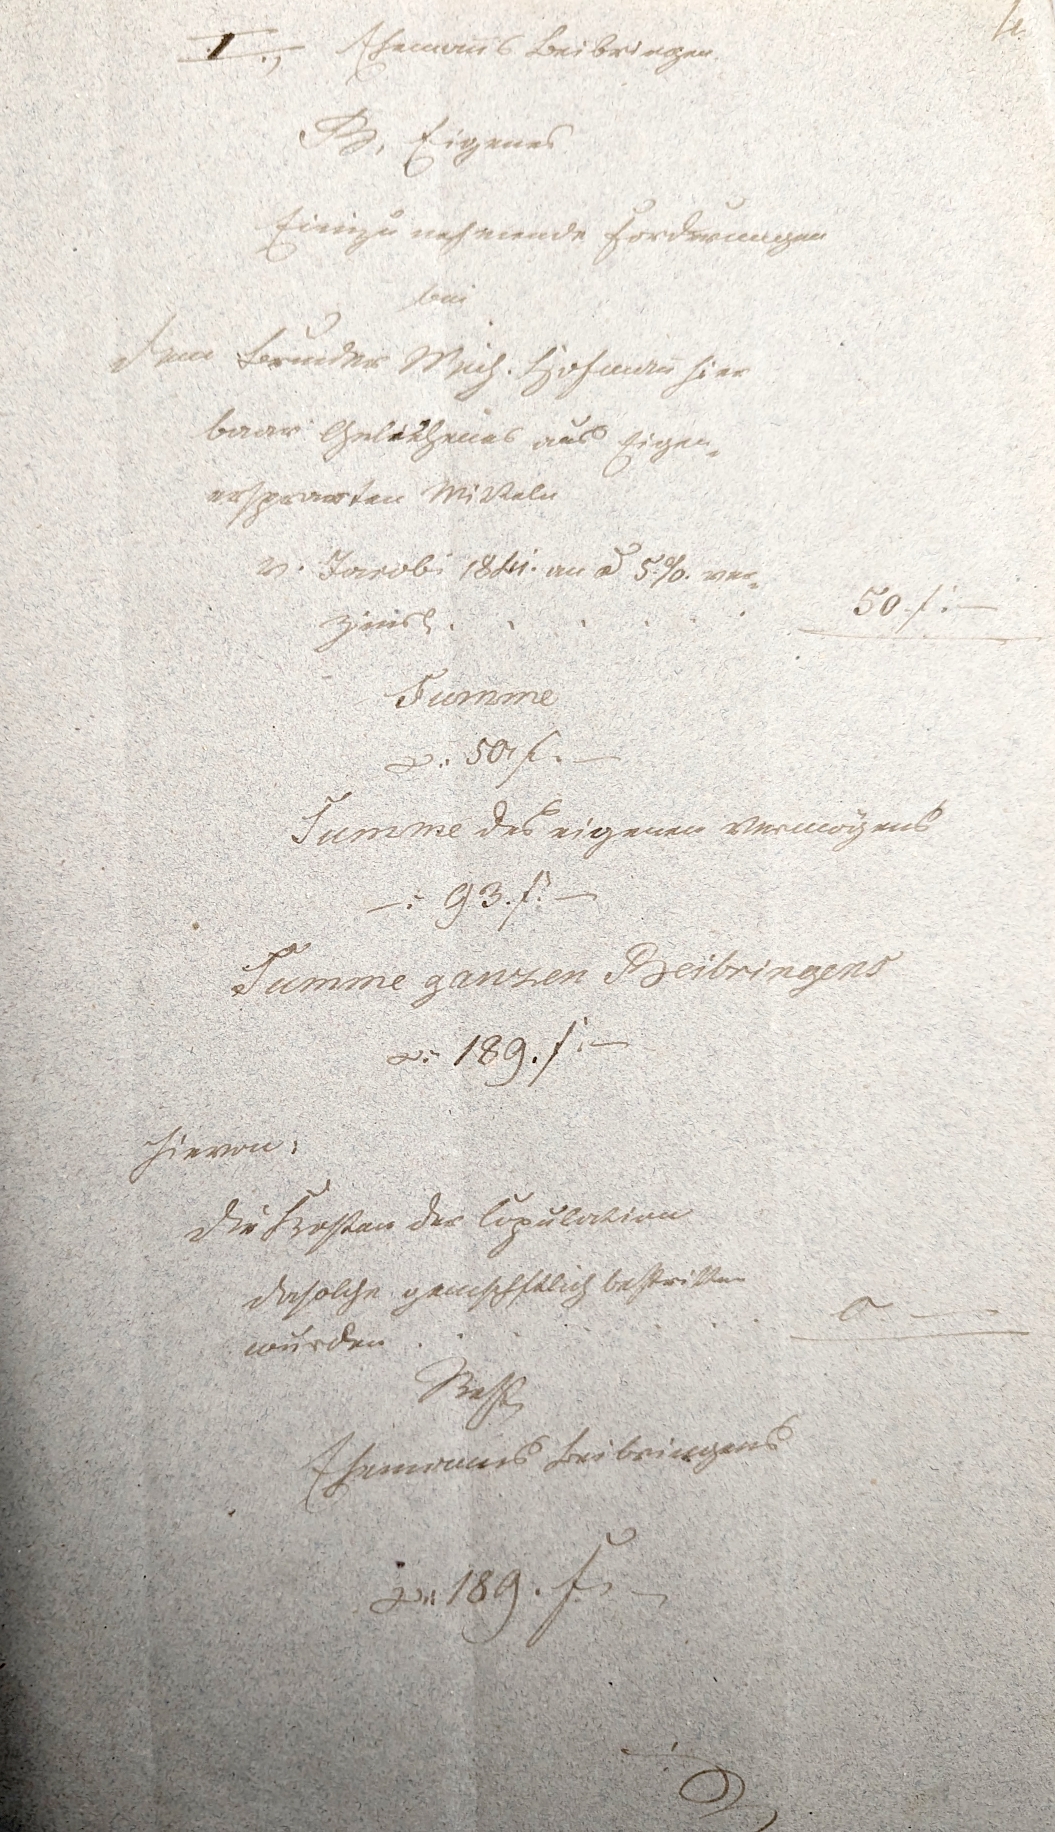 I., Ehemanns Beibringen
B, Eigenes
Einzu nehmende Forderungen
bei
dem Bruder Mich. Hofmann hier
baar Geliehenes aus Eigen-
ersparten Mitteln
v. Jacobi an à 5.%. ver-
zinsl. . . . . . 50 f. —
Summe
50 f. —
Summe des eigenen Vermögens
—: 93. f: —
Summe ganzen Beibringens
189. f: —
Hievon:
die Kosten der Copulation
da solche gemschftlich bestritten
wurden . . . . . 0 —
Rest
Ehemanns Beibringens
189. f. —